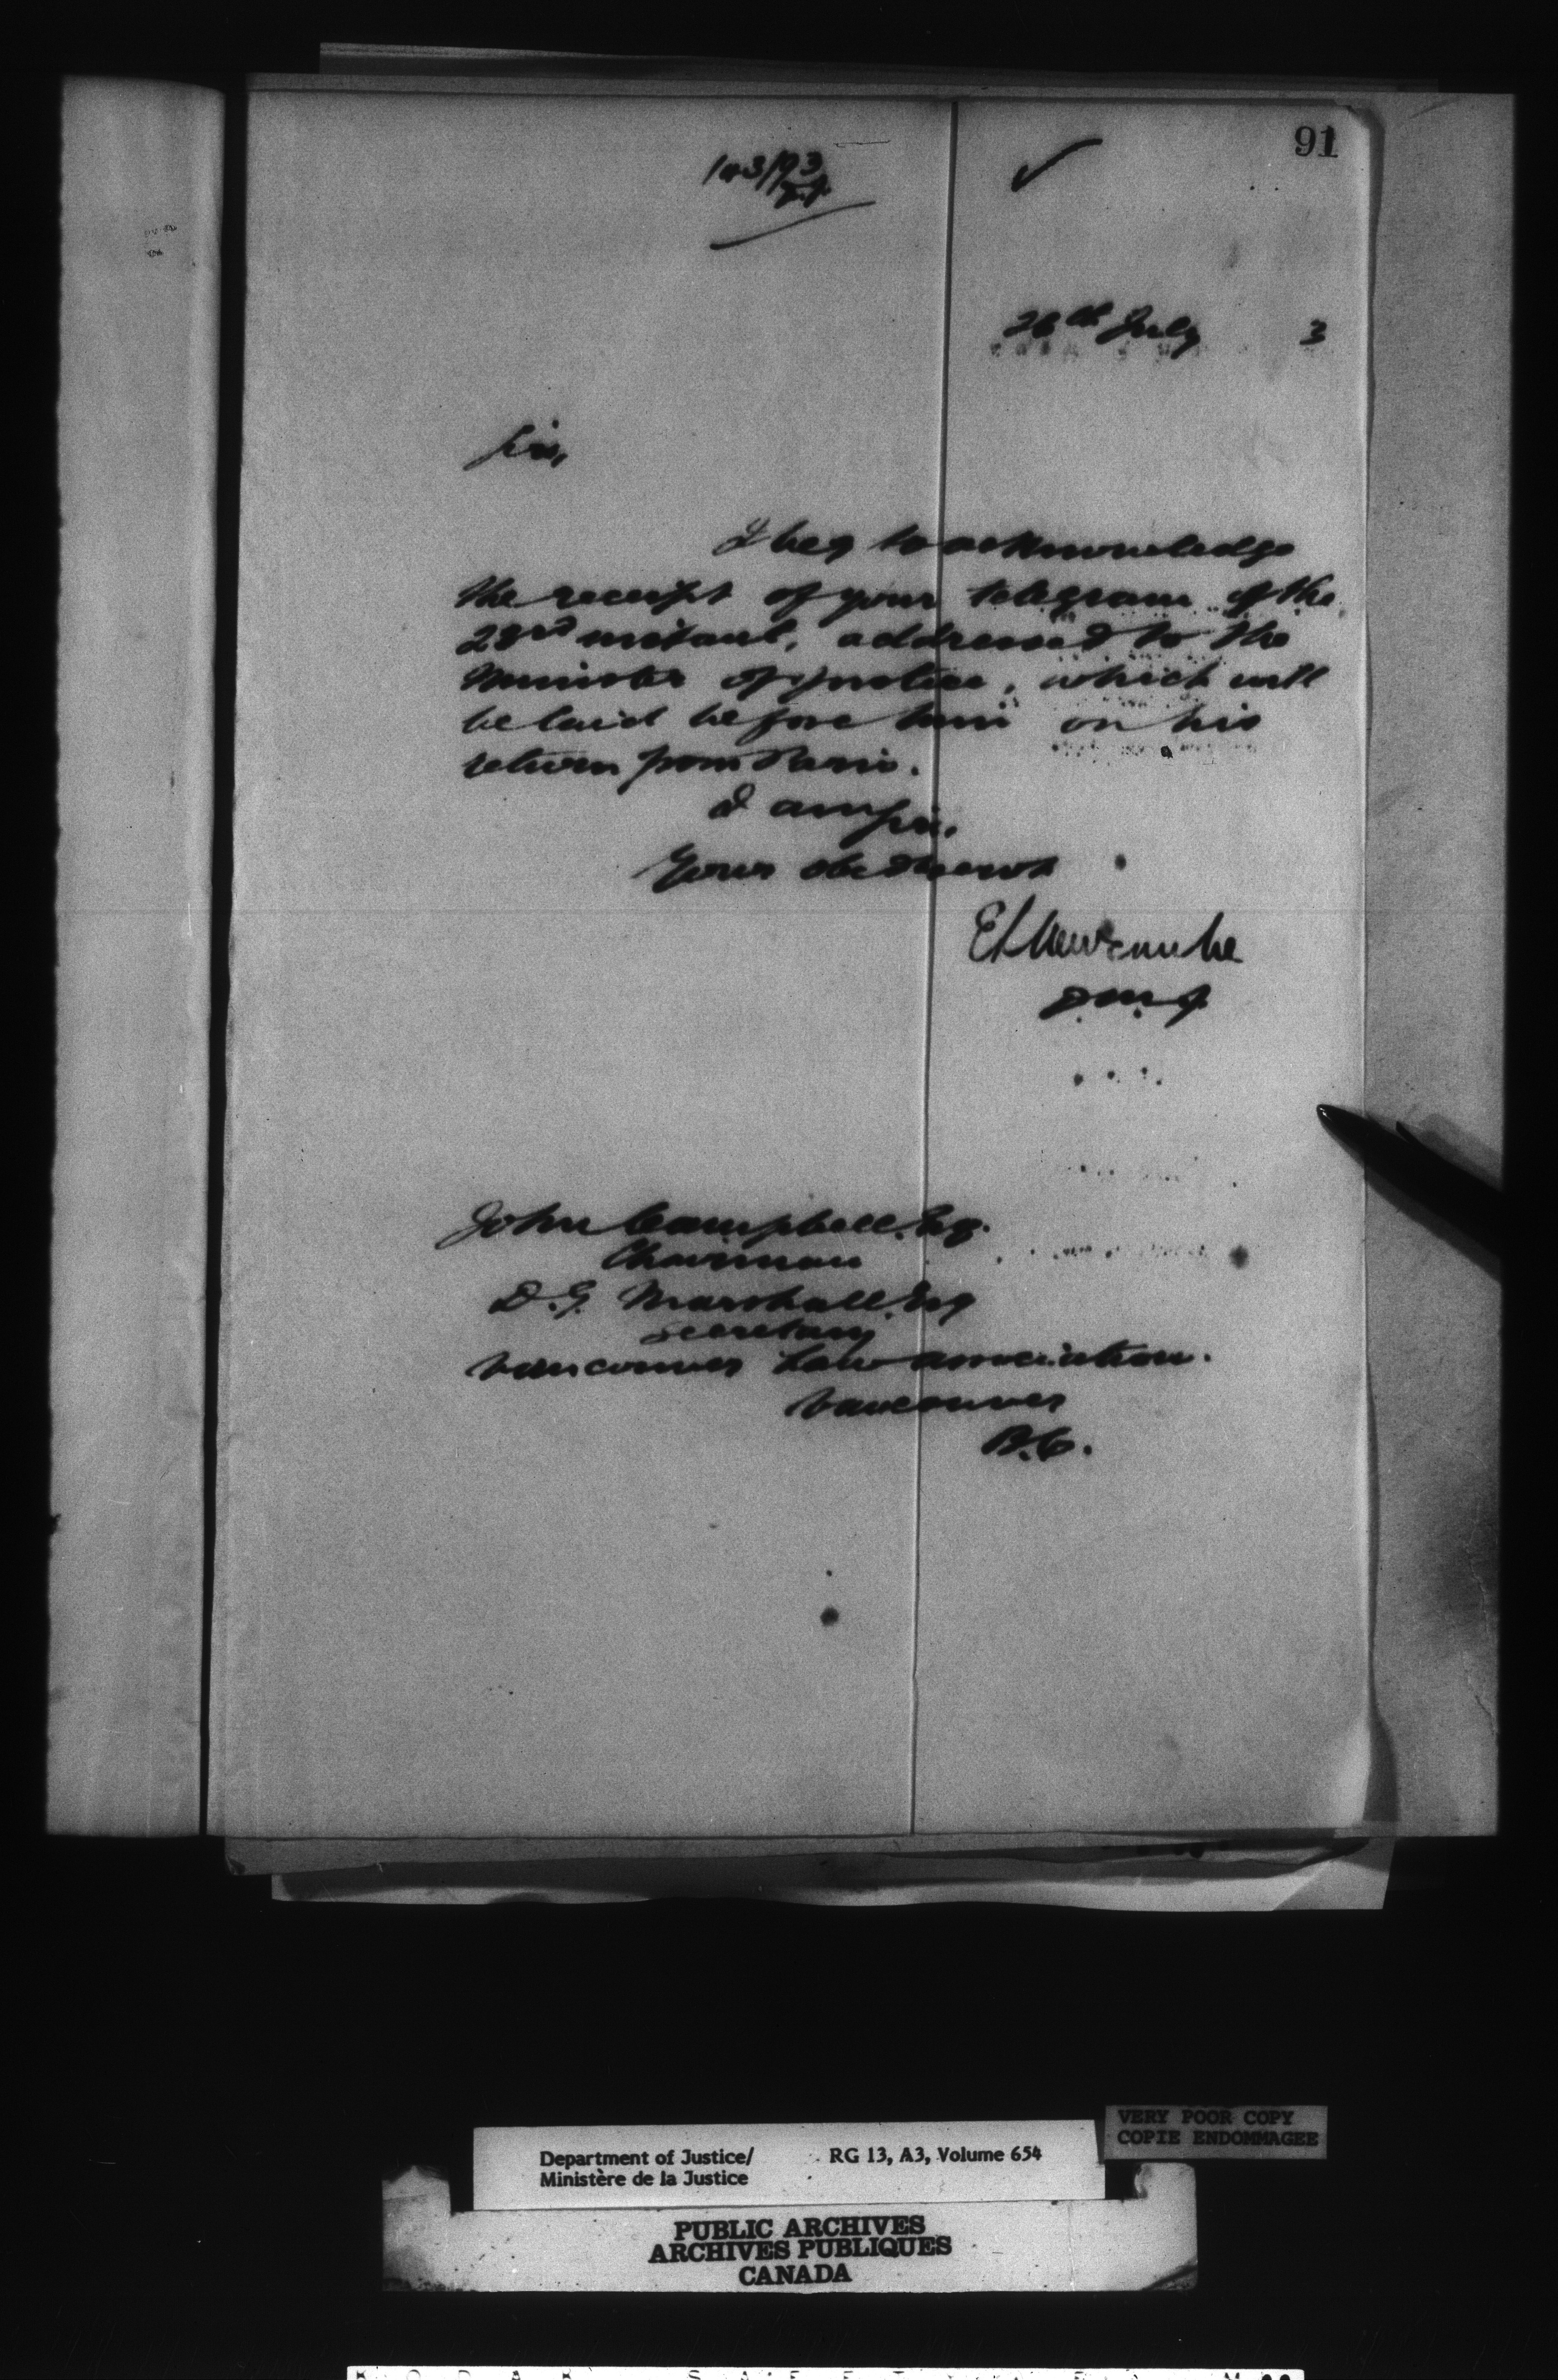 91
26th July 3
Sir,
I beg to acknowledge
the receipt of your telegram of the
23rd instant, addressed to the
Minister of Justice, which will
be laid before him on his
return from Paris.
I am, Sir,
Your obedient servt
E L Newcombe
D.M.J.
John Campbell, Esq.
Chairman
D.G. Marshall, Esq
Secretary
Vancouver Law Association.
Vancouver
B.C.
VERY POOR COPY
COPIE ENDOMMAGEE
Department of Justice/ RG 13, A3, Volume 654
Ministère de la Justice
PUBLIC ARCHIVES
ARCHIVES PUBLIQUES
CANADA